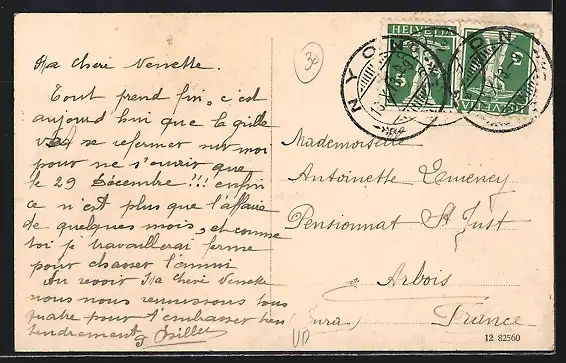 Ma Cheré Nenette.
Tout prend fin, c'est
aujourd'hui que la grille
va se refermer sur moi
pour ne s'ouvrir que
le 29 Décembre !!! enfin
ce n'est plus que l'affaire
de quelques mois, et comme
toi je travaillerai ferme
pour chasser l'ennui
Au revoir Ma Cheré Nenette
nous nous réunissons tous
quatre pour t'embasser bien
tendrement
30
HELVETIA
5
HELVETIA
5
NYON
NYON
Mademoiselle
Antoinette
Pensionnat St Just
à Arbois
(Jura) France
VD
12 82560